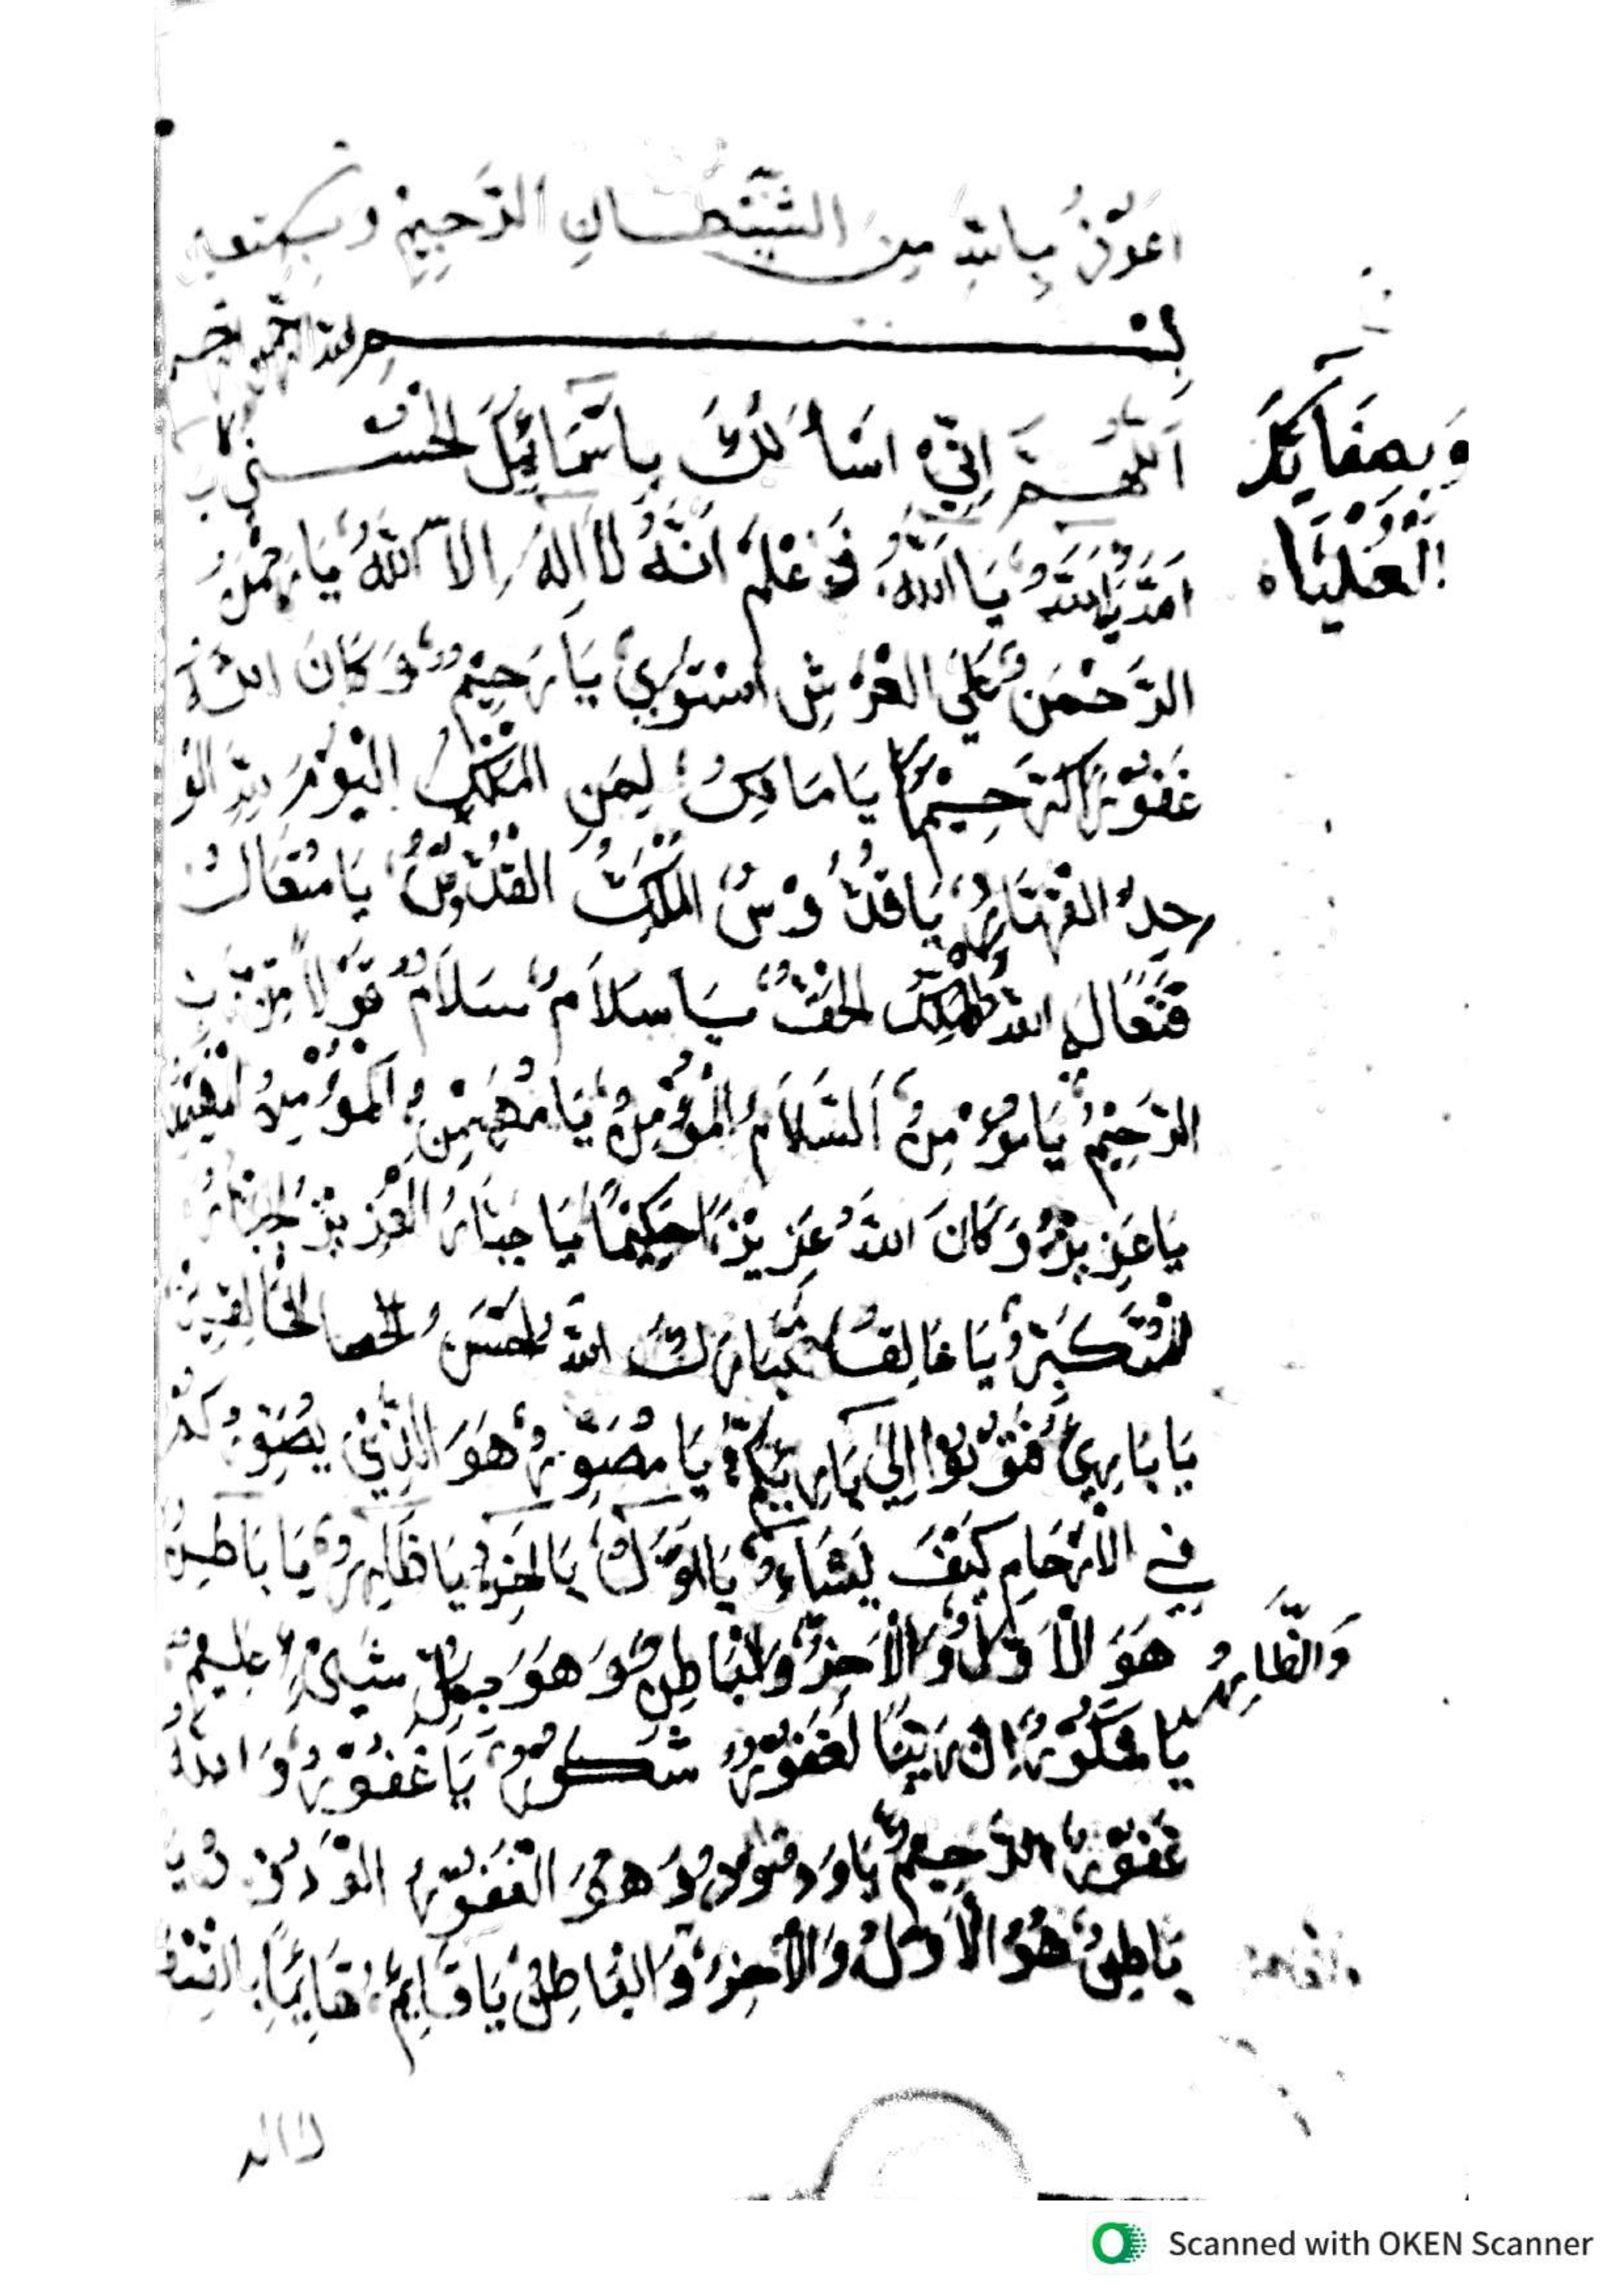 اَعُوْذُ بِاللّٰهِ مِنَ الشَّيْطَانِ الرَّجِيْمِ وَبِهٖ نَسْتَعِيْنُ
بِسْمِ اللّٰهِ الرَّحْمٰنِ الرَّحِيْمِ
اَللّٰهُمَّ اِنِّيْ اَسْأَلُكَ بِاَسْمَآئِكَ الْحُسْنٰى
وَبِصِفَاتِكَ
الْعُلْيَاہ
يَا اَللّٰهُ فَاعْلَمْ اَنَّهُ لَا اِلٰهَ اِلَّا اللّٰهُ يَا رَحْمٰنُ
الرَّحْمٰنُ عَلَي الْعَرْشِ اسْتَوٰي يَا رَحِيْمُ وَكَانَ اللّٰهُ
غَفُوْرًا رَّحِيْمًا يَا مَالِكُ لِمَنِ الْمُلْكُ الْيَوْمَ لِلّٰهِ الْوَا
حِدُ الْقَهَّارُ يَا قُدُّوْسُ الْمَلِكُ الْقُدُّوْسُ يَا مُتَعَالُ
فَتَعَالَي اللّٰهُ الْمَلِكُ الْحَقُّ يَا سَلَامُ سَلَامٌ قَوْلًا مِّنْ رَّبٍّ
الرَّحِيْمُ يَا مُؤْمِنُ اَلسَّلَامُ الْمُؤْمِنُ يَا مُهَيْمِنُ اَلْمُؤْمِنُ الْمُهَيْمِنُ
يَا عَزِيْزُ وَكَانَ اللّٰهُ عَزِيْزًا حَكِيْمًا يَا جَبَّارُ الْعَزِيْزُ الْجَبَّارُ
الْمُتَكَبِّرُ يَا خَالِقُ فَتَبَارَكَ اللّٰهُ اَحْسَنُ الْخَالِقِيْنَ
يَا بَارِئُ فَتُوْبُوْا اِلٰي بَارِئِكُمْ يَا مُصَوِّرُ هُوَ الَّذِيْ يُصَوِّرُكُمْ
فِي الْاَرْحَامِ كَيْفَ يَشَآءُ يَا اَوَّلُ يَا اٰخِرُ يَا ظَاهِرُ يَا بَاطِنُ
هُوَ الْاَوَّلُ وَالْاٰخِرُ وَالْبَاطِنُ وَهُوَ بِكُلِّ شَيْءٍ عَلِيْمٌ
وَالظَّاهِرُ
يَا شَكُوْرُ اِنَّ رَبَّنَا لَغَفُوْرٌ شَكُوْرٌ يَا غَفُوْرُ وَاللّٰهُ
غَفُوْرٌ الرَّحِيْمُ يَا وَدُوْدُ وَهُوَ الْغَفُوْرُ الْوَدُوْدُ يَا
بَاطِنُ هُوَ الْاَوَّلُ وَالْاٰخِرُ وَالْبَاطِنُ يَا قَائِمُ قَائِمًا بِالْقِسْطِ
Scanned with OKEN Scanner